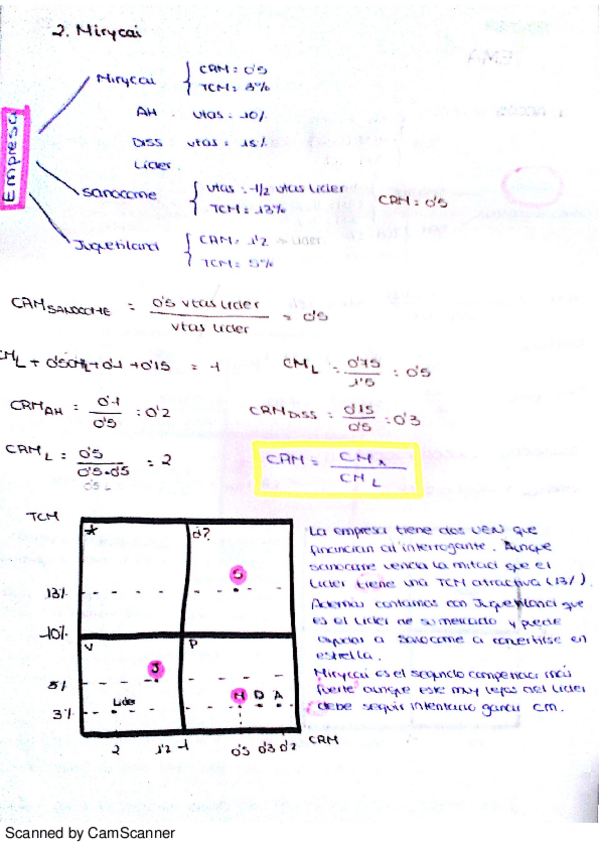 2. Mirycai
Empresa
Mirycai { CRM = 0'5
TCM = 3%
AH vtas = 10%
DISS vtas = 15%
Lider
Sanocome { vtas = 1/2 vtas lider CRM = 0'5
TCM = 13%
Juquetilandi { CRM = 1'2 → Lider
TCM = 5%
CRM SANOCOME = 0'5 vtas lider / vtas lider = 0'5
CM L + 0'5CM L + 0'1 + 0'15 = 1 CM L = 0'75 / 1'5 = 0'5
CRM AH = 0'1 / 0'5 = 0'2 CRM DISS = 0'15 / 0'5 = 0'3
CRM L = 0'5 / 0'5·0'5 = 2
CRM = CM x / CM L
TCM
* ¿?
S
13%
10%
V P
J
5%
Lider M D A
3%
2 1'2 1 0'5 0'3 0'2 CRM
La empresa tiene dos UEN que
financian al interrogante. Aunque
sanocome vendia la mitad que el
Lider tiene una TCM atractiva (13%).
Además contamos con Juquetilandi que
es el Lider de su mercado y puede
ayudar a Sanocome a convertirse en
estrella.
Miryccai es el segundo competidor más
fuerte aunque esté muy lejos del Lider
debe seguir intentando ganar CM.
Scanned by CamScanner